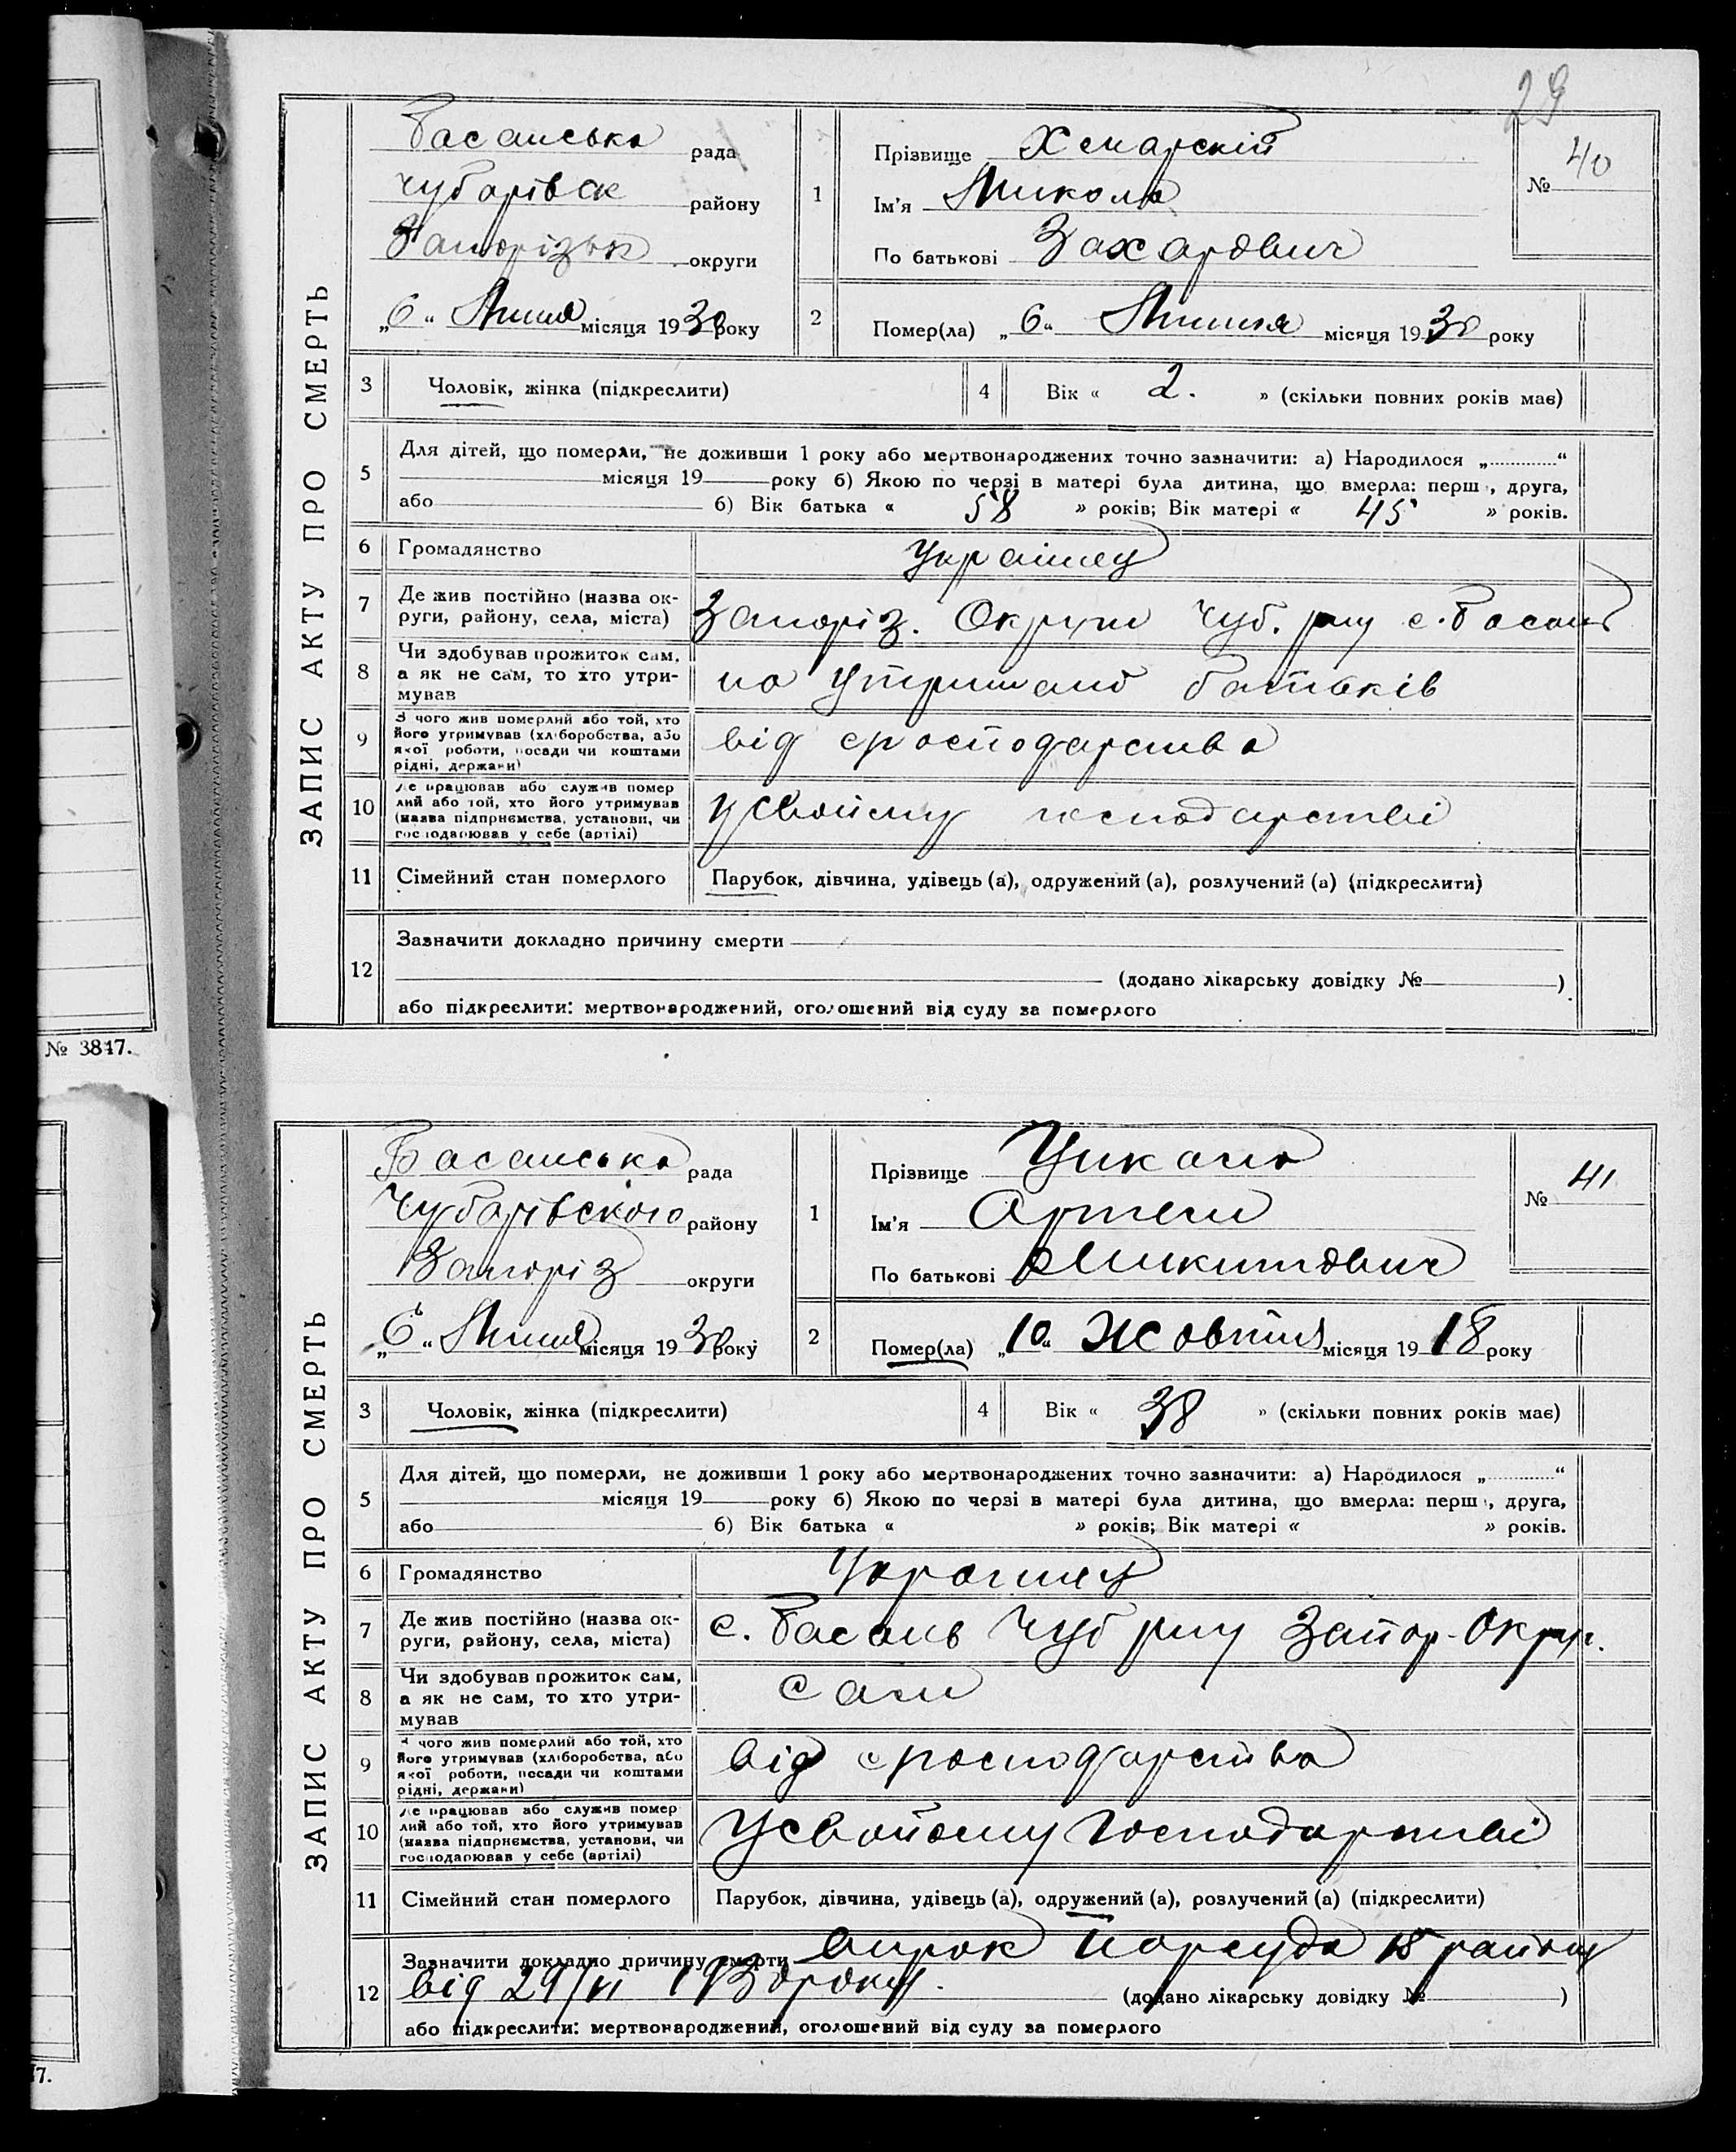 29
ЗАПИС АКТУ ПРО СМЕРТЬ
Басанська рада
Чубарівськ району
Запорізьк округи
„6“ Липня місяця 1930 року
1 Прізвище Хмарскій
Ім'я Микола
По батькові Захарович
№ 40
2 Помер(ла) „6“ Липня місяця 1930 року
3 Чоловік, жінка (підкреслити)
4 Вік « 2. » (скільки повних років має)
5 Для дітей, що померли, не доживши 1 року або мертвонароджених точно зазначити: а) Народилося „ “
місяця 19 року б) Якою по черзі в матері була дитина, що вмерла: перш , друга,
або б) Вік батька « 58 » років; Вік матері « 45 » років.
6 Громадянство Українец
7 Де жив постійно (назва ок-
руги, району, села, міста) Запоріз. Округи Чуб. р-ну с. Басань
8 Чи здобував прожиток сам,
а як не сам, то хто утри-
мував на утриманні батьків
9 З чого жив померлий або той, хто
його утримував (хліборобства, або
якої роботи, посади чи коштами
рідні, держави) від с господарства
10 Де працював або служив помер
лий або той, хто його утримував
(назва підприємства, установи, чи
господарював у себе (артілі) у свойому господарстві
11 Сімейний стан померлого Парубок, дівчина, удівець (а), одружений (а), розлучений (а) (підкреслити)
12 Зазначити докладно причину смерти
(додано лікарську довідку № )
або підкреслити: мертвонароджений, оголошений від суду за померлого
№ 3847.
ЗАПИС АКТУ ПРО СМЕРТЬ
Басанська рада
Чубарівского району
Запоріз округи
„6“ Липня місяця 1930 року
1 Прізвище Цикало
Ім'я Артем
По батькові Микитович
№ 41
2 Помер(ла) „10“ Жовтня місяця 1918 року
3 Чоловік, жінка (підкреслити)
4 Вік « 38 » (скільки повних років має)
5 Для дітей, що померли, не доживши 1 року або мертвонароджених точно зазначити: а) Народилося „ “
місяця 19 року б) Якою по черзі в матері була дитина, що вмерла: перш , друга,
або б) Вік батька « » років; Вік матері « » років.
6 Громадянство Українец
7 Де жив постійно (назва ок-
руги, району, села, міста) с. Басань Чуб р-ну Запор. Округ.
8 Чи здобував прожиток сам,
а як не сам, то хто утри-
мував сам
9 З чого жив померлий або той, хто
його утримував (хліборобства, або
якої роботи, посади чи коштами
рідні, держави) від с господарства
10 Де працював або служив помер
лий або той, хто його утримував
(назва підприємства, установи, чи
господарював у себе (артілі) у свойому господарстві
11 Сімейний стан померлого Парубок, дівчина, удівець (а), одружений (а), розлучений (а) (підкреслити)
12 Зазначити докладно причину смерти вирок Нарсуда 18 району
від 29/VI 1930 року. (додано лікарську довідку № )
або підкреслити: мертвонароджений, оголошений від суду за померлого
7.